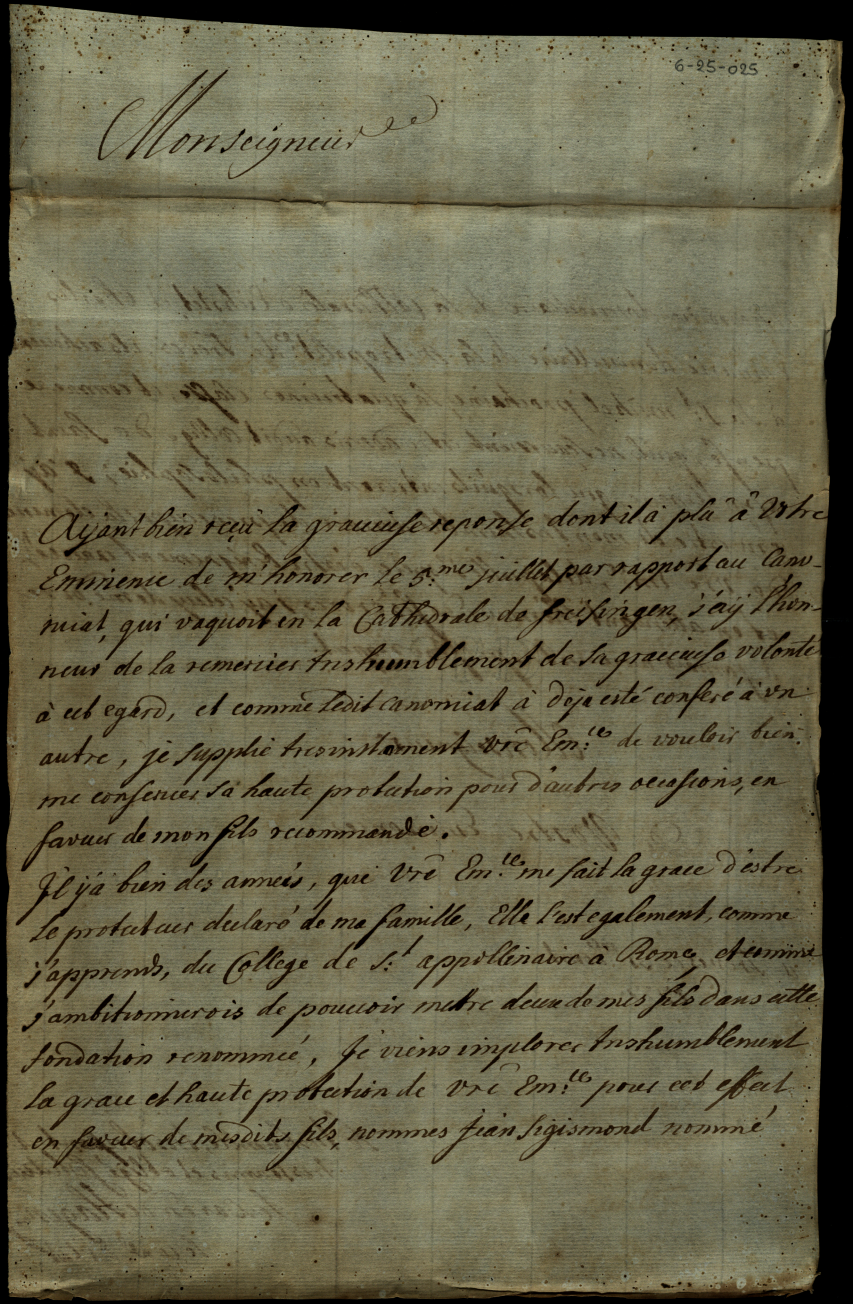 6-25-025
Monseigneur
Ayant bien reçu la gracieuse reponse dont il a plû à Votre
Eminence de m'honorer le 5.mes juillet par rapport au Cano-
niat, qui vaquoit en la Cathedrale de freisingen, j'aij l'hon-
neur de la remercier treshumblement de sa gracieuse volonté
à cet egard, et comme ledit canoniat à deja esté conferé à un
autre, je supplie tresinstament vrê Em:ce de vouloir bien
me conserver sa haute protection pour d'autres occasions, en
faveur de mon fils recommandé.
Il ja bien des années, que Vrê Em:ce me fait la grace d'éstre
le protecteur declaré de ma famille, Elle l'est egalement, comme
j'apprends, du College de S:t appollinaire à Rome, et comme
j'ambitionnerois de pouvoir mettre deux de mes fils dans cette
fondation renommée, Je viens implorer treshumblement
la grace et haute protection de vrê Em:ce pour cet effect
en faveur de mesdits fils, nommes Jean Sigismond nommé